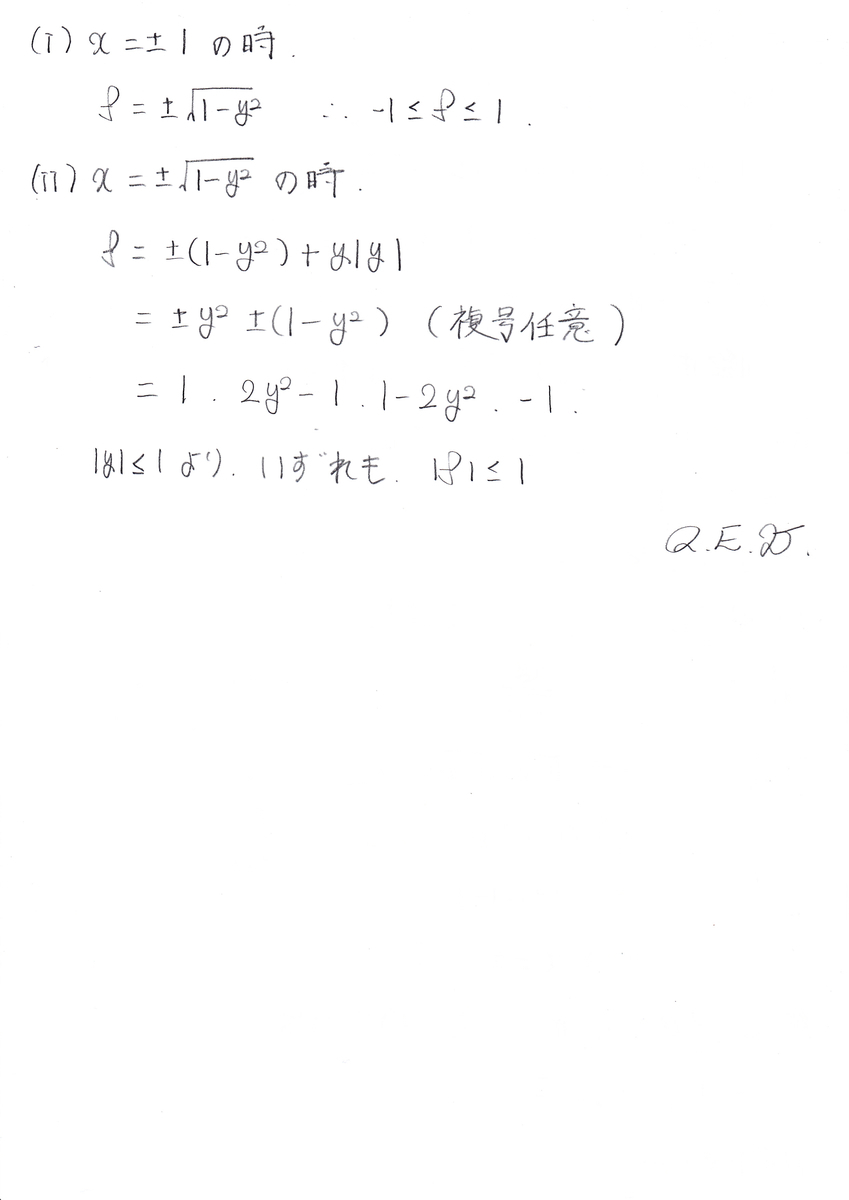 (i) x = ±1 の時.
f = ±√(1-y²) ∴ -1 ≤ f ≤ 1.
(ii) x = ±√(1-y²) の時.
f = ±(1-y²) + y|y|
= ±y² ±(1-y²) (複号任意)
= 1. 2y²-1. 1-2y². -1.
|y| ≤ 1 より. いずれも. |f| ≤ 1
Q.E.D.